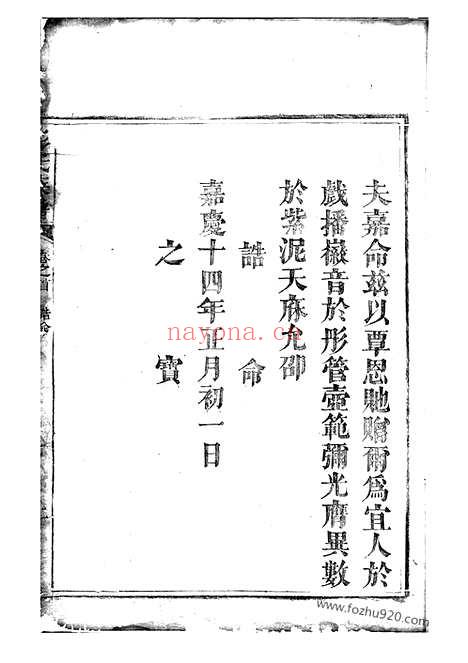 夫嘉命兹以覃恩貤贈爾為宜人於
戲播徽音於彤管壺範彌光膺異數
於紫泥天庥允卲
誥命
嘉慶十四年正月初一日
之寶
卷之首 誥命
nayona.cn
www.fozhu920.com